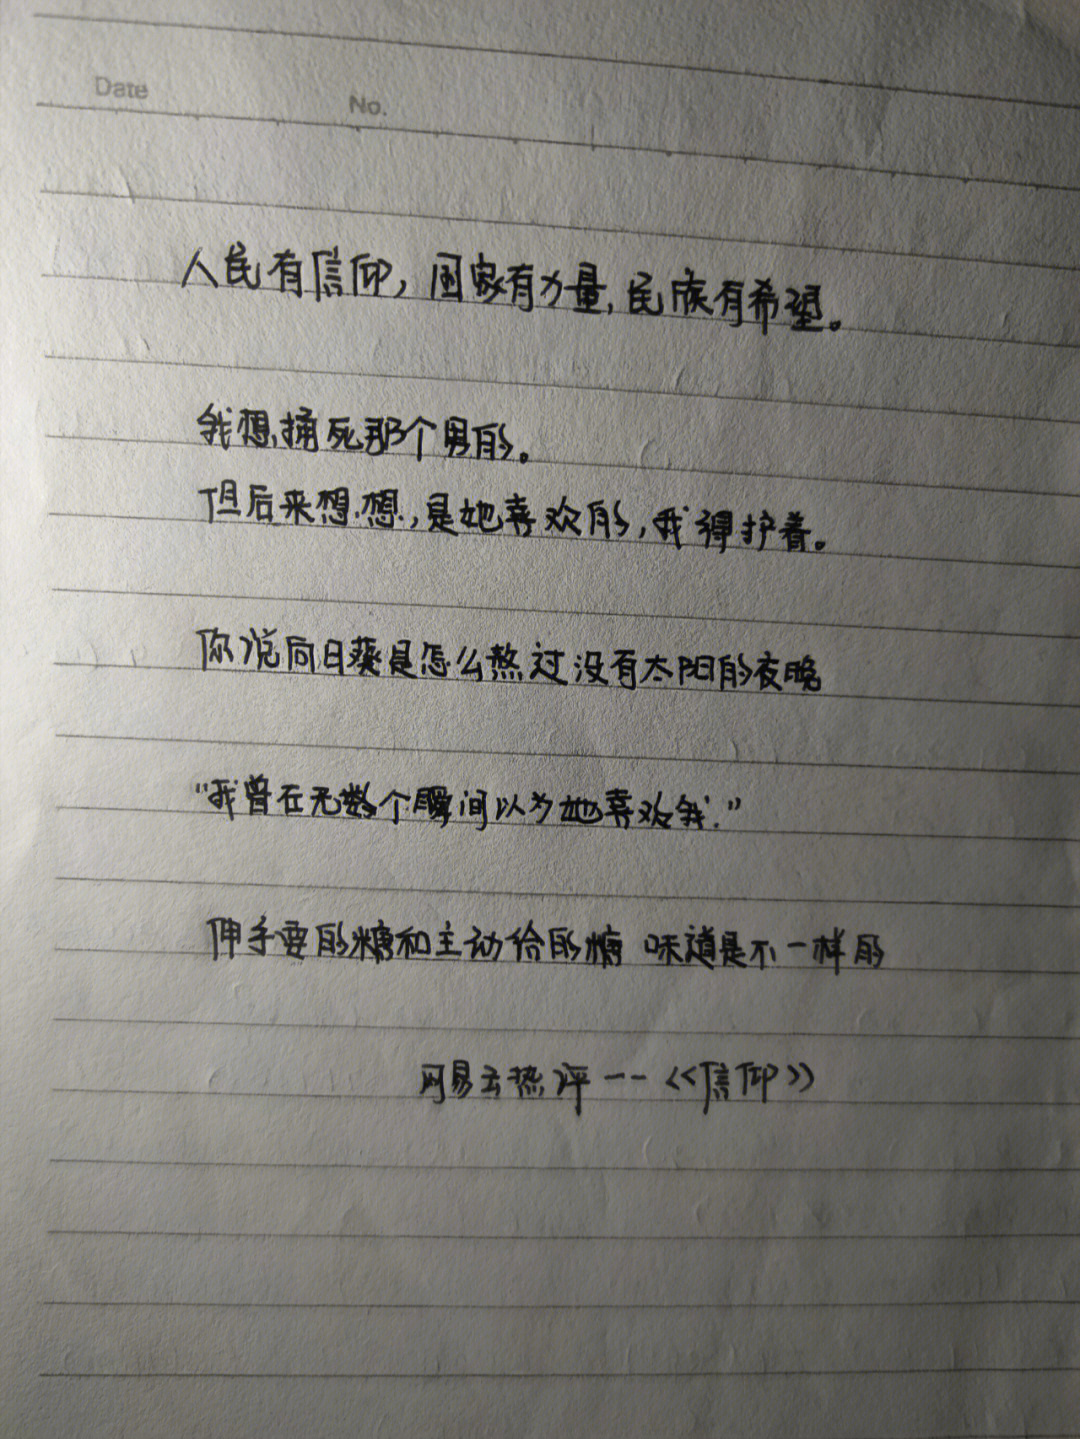 Date No.
人民有信仰，国家有力量，民族有希望。
我想捅死那个男的。
但后来想想，是她喜欢的，我得护着。
你说向日葵是怎么熬过没有太阳的夜晚
“我曾在无数个瞬间以为她喜欢我.”
伸手要的糖和主动给的糖 味道是不一样的
网易云热评--<<信仰>>